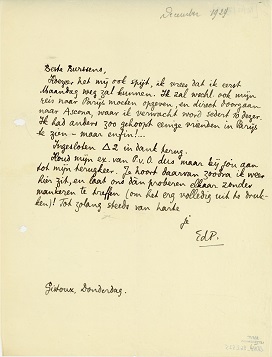 December 1929
Beste Burssens,
Hoezeer het mij ook spijt, ik vrees dat ik eerst
Maandag weg zal kunnen. Ik zal wschl ook mijn
reis naar Parijs moeten opgeven, en direct doorgaan
naar Ascona, waar ik verwacht word sedert 10 dezer.
Ik had anders zoo gehoopt eenige vrienden in Parijs
te zien – maar enfin!...
Ingesloten Δ2 in dank terug.
Houd mijn ex. van P.v.O. dus maar bij jou aan
tot mijn terugkeer. Je hoort daarvan zoodra ik weer
hier zit, en laat ons dan proberen elkaar zonder
mankeren te treffen (om het erg volledig uit te druk-
ken)! Tot zolang steeds van harte
je
EdP.
Gistoux, Donderdag.